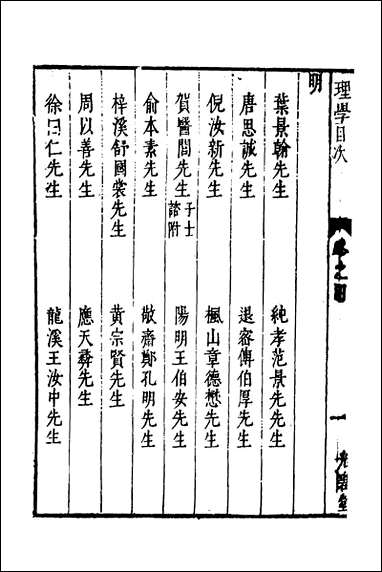 理學目次
卷之四
一
明
葉景翰先生
純孝范景先先生
唐思誠先生
遜密傅伯厚先生
倪汝新先生
楓山章德懋先生
賀醫閭先生 子士諮附
陽明王伯安先生
俞本素先生
敬齋鄭孔明先生
梓溪舒國裳先生
黃宗賢先生
周以善先生
應天彝先生
徐曰仁先生
龍溪王汝中先生